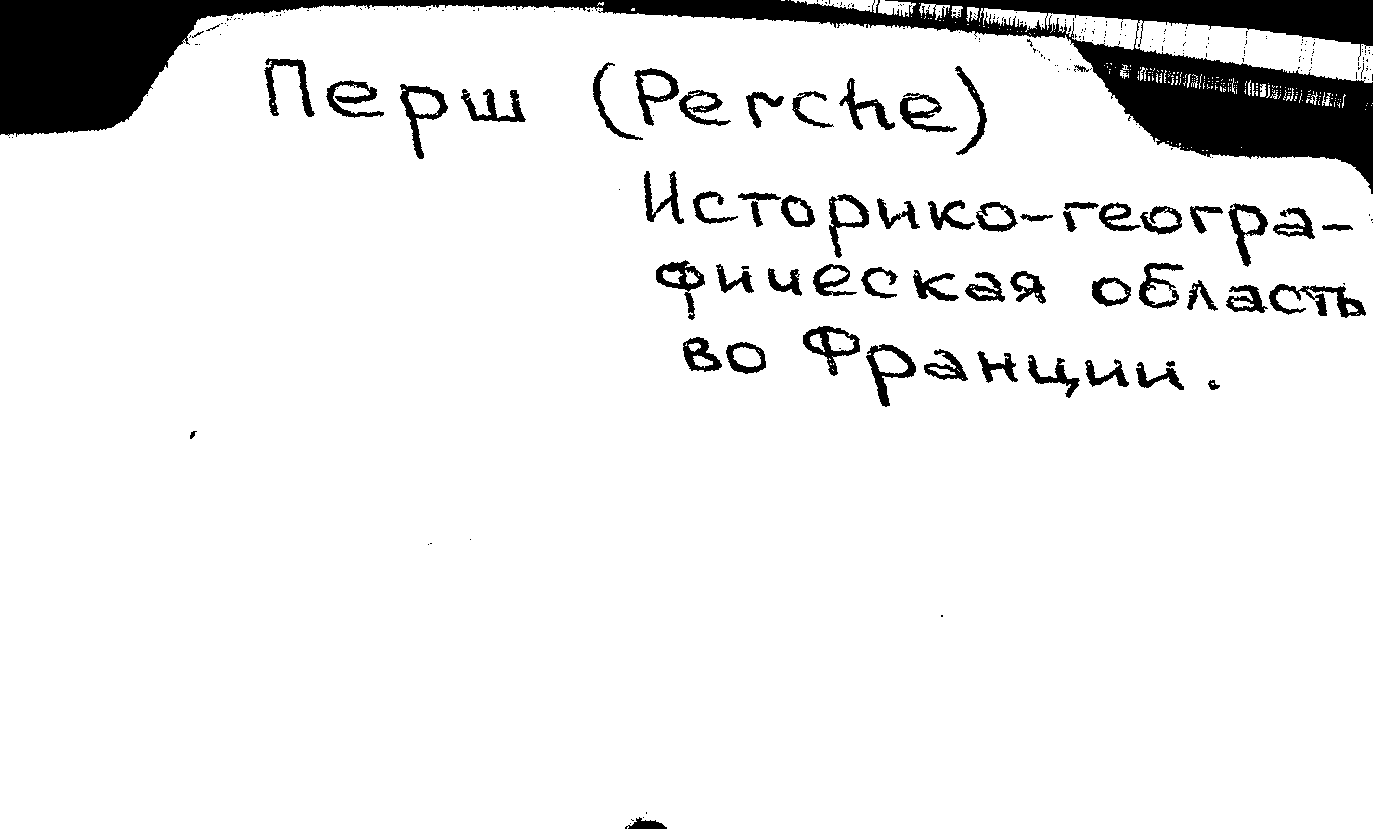 Перш (Perche)
Историко-геогра-
фическая область
во Франции.